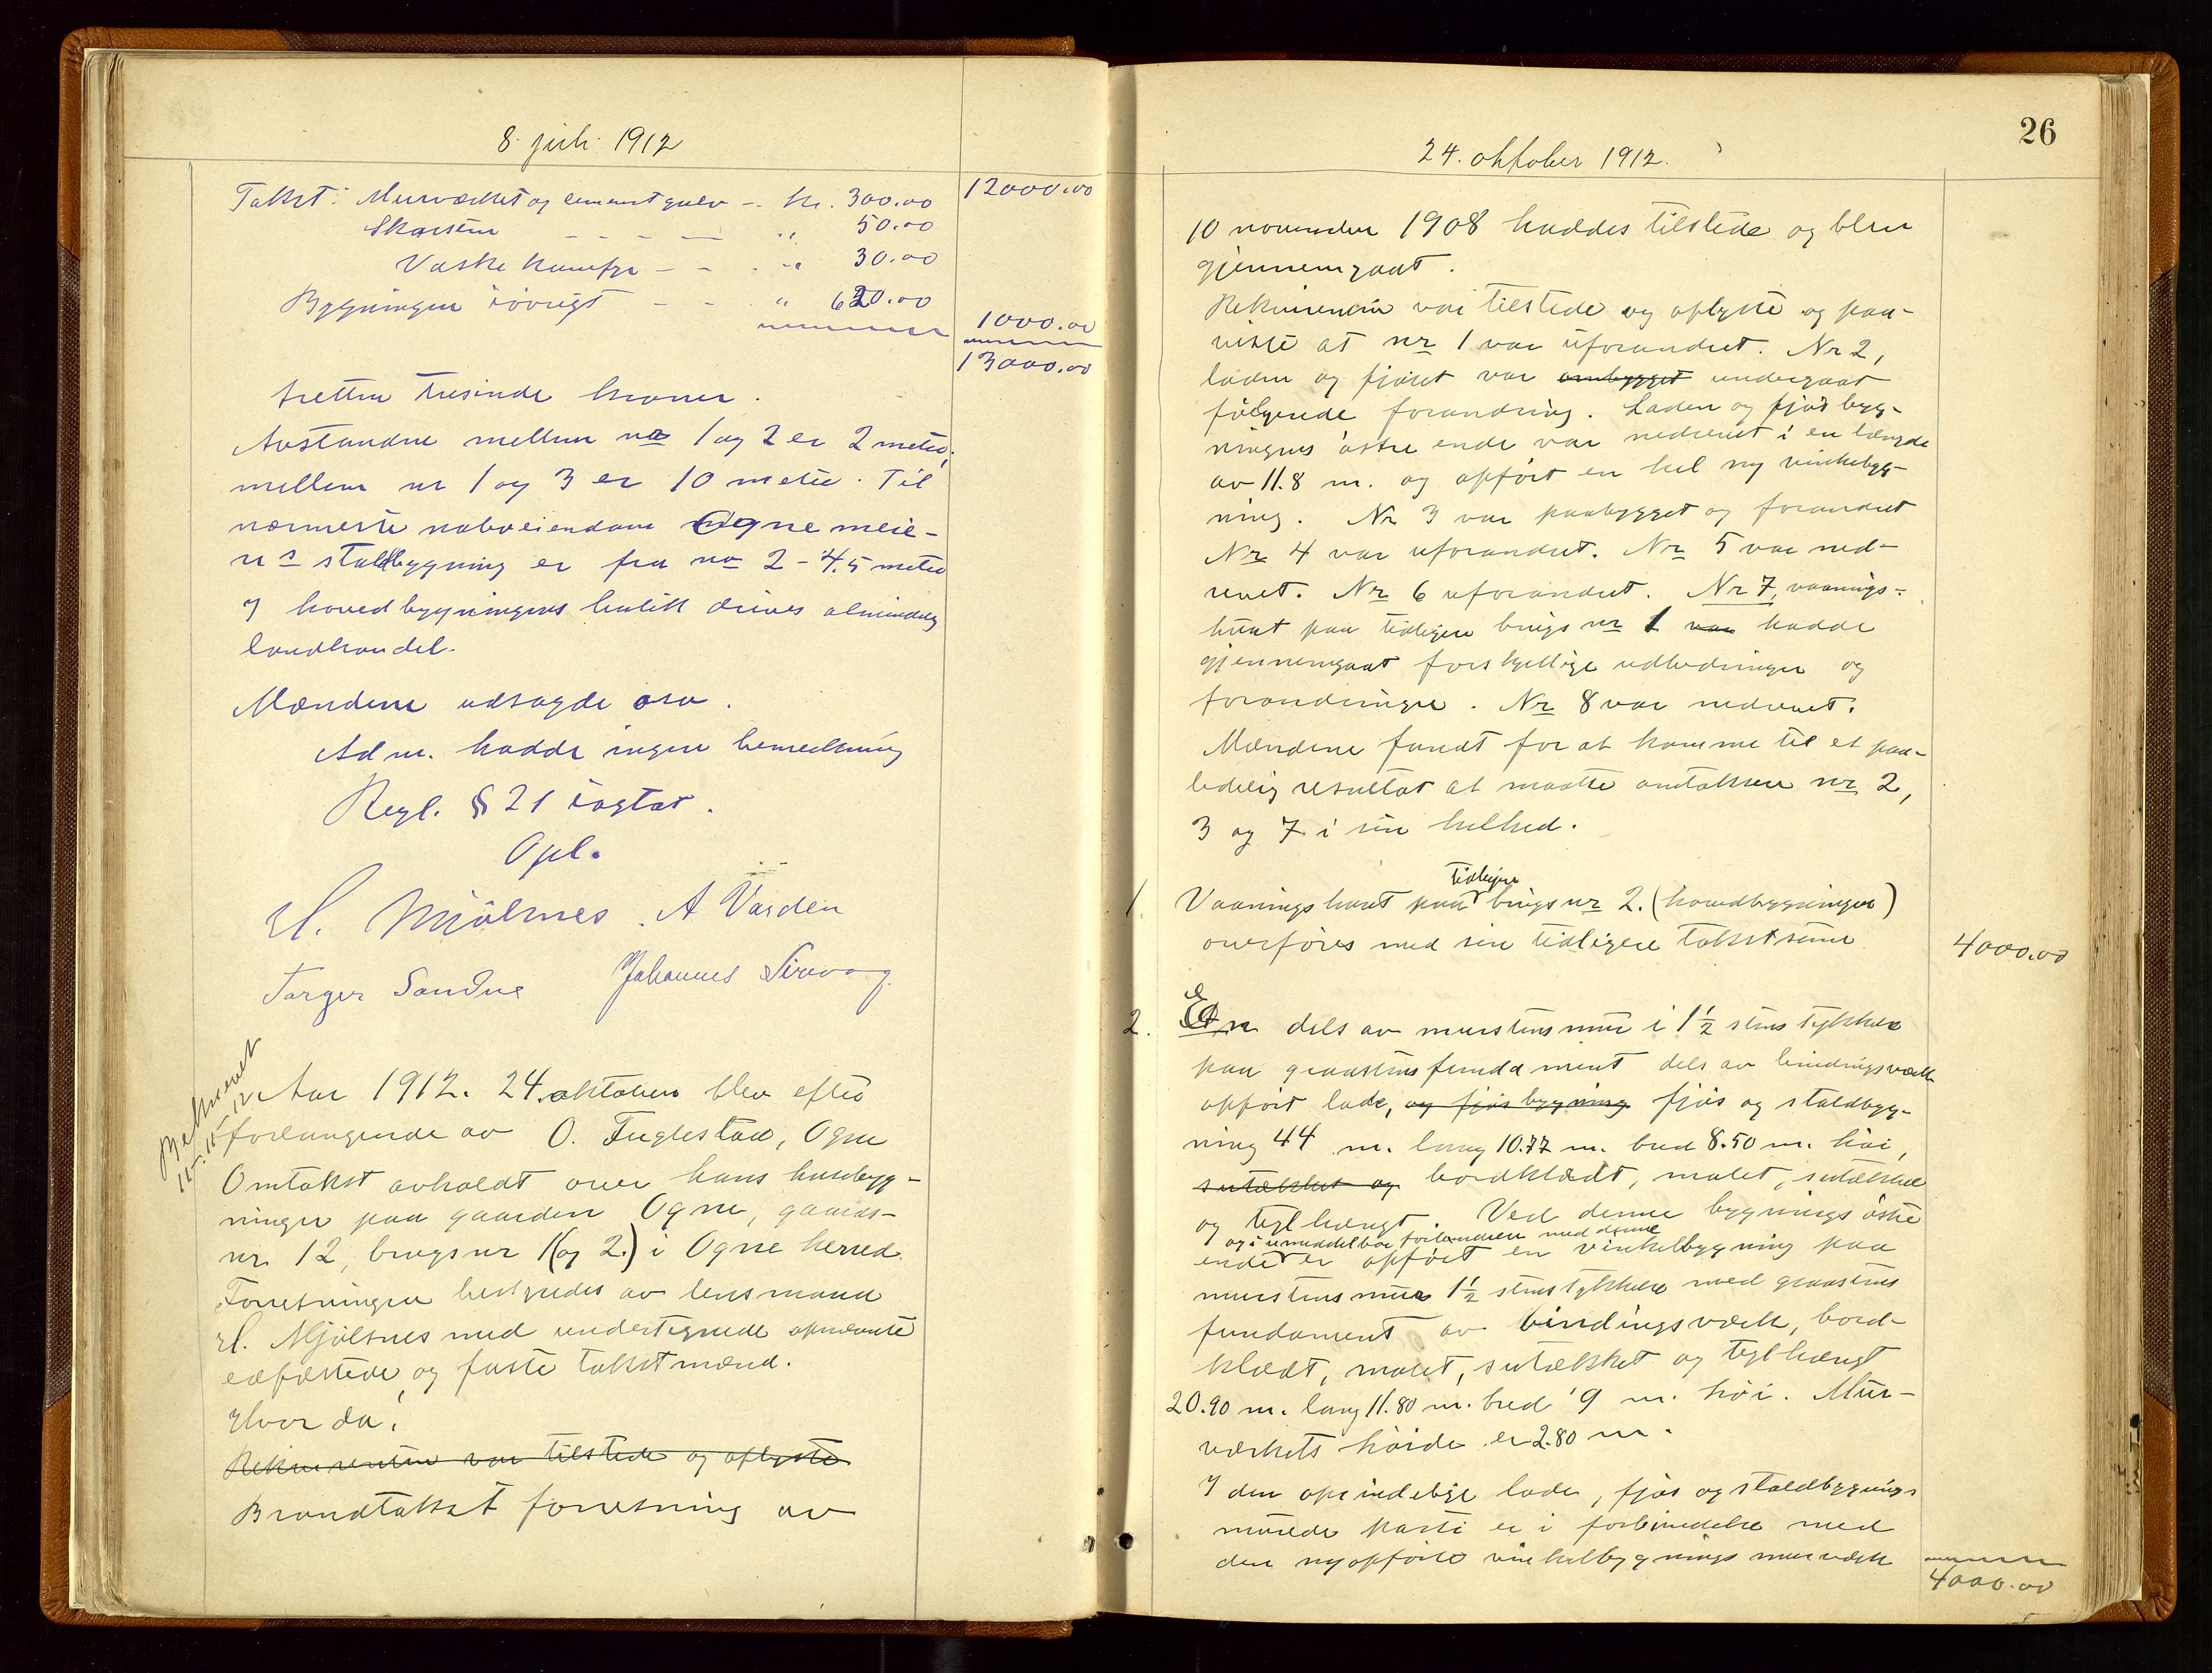 8. juli 1912
Takst: Murværket og cementgulv - kr. 300.00 12000.00
Skorsten - - - - " 50.00
Vaskekomfyr - - - " 30.00
Bygningen iøvrigt - - " 620.00
1000.00
13000.00
tretten tusinde kroner.
Avstanden mellem no 1 og 2 er 2 meter,
mellem nr 1 og 3 er 10 meter. Til
nærmeste naboeiendom Ogne meie-
ris staldbygning er fra no 2 - 4.5 meter
I hovedbygningens butik drives almindelig
landhandel.
Mændene udsagde osv.
Adm. hadde ingen bemerkning
Regl. § 21 iagtat.
Opl.
H. Mjölsnes. A Varden
Torger Sandve Johannes Sirevaag
Bekrevet
15-11-12
Aar 1912. 24. oktober blev efter
forlangende av O. Fuglestad, Ogne
Omtakst avholdt over hans husebyg-
ninger paa gaarden Ogne, gaards-
nr. 12, brugsnr 1 (og 2.) i Ogne herred.
Forretningen bestyredes av lensmand
H. Mjölsnes med undertegnede opnævnte
edfæstede og faste takstmænd.
Hvor da:
Rekvirenten var tilstede og oplyste
Brandtakst forretning av
26
24. oktober 1912.
10 november 1908 haddes tilstede og blev
gjennemgaat.
Rekvirenten var tilstede og oplyste og paa-
viste at nr 1 var uforandret. Nr 2,
laden og fjöset var ombygget undergaat
følgende forandring. Laden og fjösbyg-
ningens östre ende var nedrevet i en længde
av 11.8 m. og opført en hel ny vinkelbyg-
ning. Nr 3 var paabygget og forandret
Nr 4 var uforandret. Nr 5 var ned-
revet. Nr 6 uforandret. Nr 7, vaanings-
huset paa tidligere brugs nr 1 var hadde
gjennemgaat forskjellige udbedringer og
forandringer. Nr 8 var nedrevet.
Mændene fandt for at komme til et paa-
lidelig resultat at maatte omtaksere nr 2,
3 og 7 i sin helhed.
1. Vaaningshuset paa tidligere brugsnr 2. (hovedbygningen)
overföres med sin tidligere takstsum 4000.00
2. En dels av murstensmur i 1½ stens tykkelse
paa graastensfundament dels av bindingsværk
opført lade, og fjösbygning fjös og staldbyg-
ning 44 m. lang 10.77 m. bred 8.50 m. höi,
sutækket og bordklædt, malet, sutækket
og teglhængt. Ved denne bygnings östre
og i umiddelbar forbindelse med denne
ende er opført en vinkelbygning paa
murstensmur 1½ stens tykkelse med graastens
fundament av bindingsværk, bord-
klædt, malet, sutækket og teglhængt
20.90 m. lang 11.80 m. bred 9 m. höi. Mur-
værkets höide er 2.80 m.
I den oprindelige lade, fjös og staldbygnings
murede parti er i forbindelse med
den nyopförte vinkelbygnings murværk
4000.00